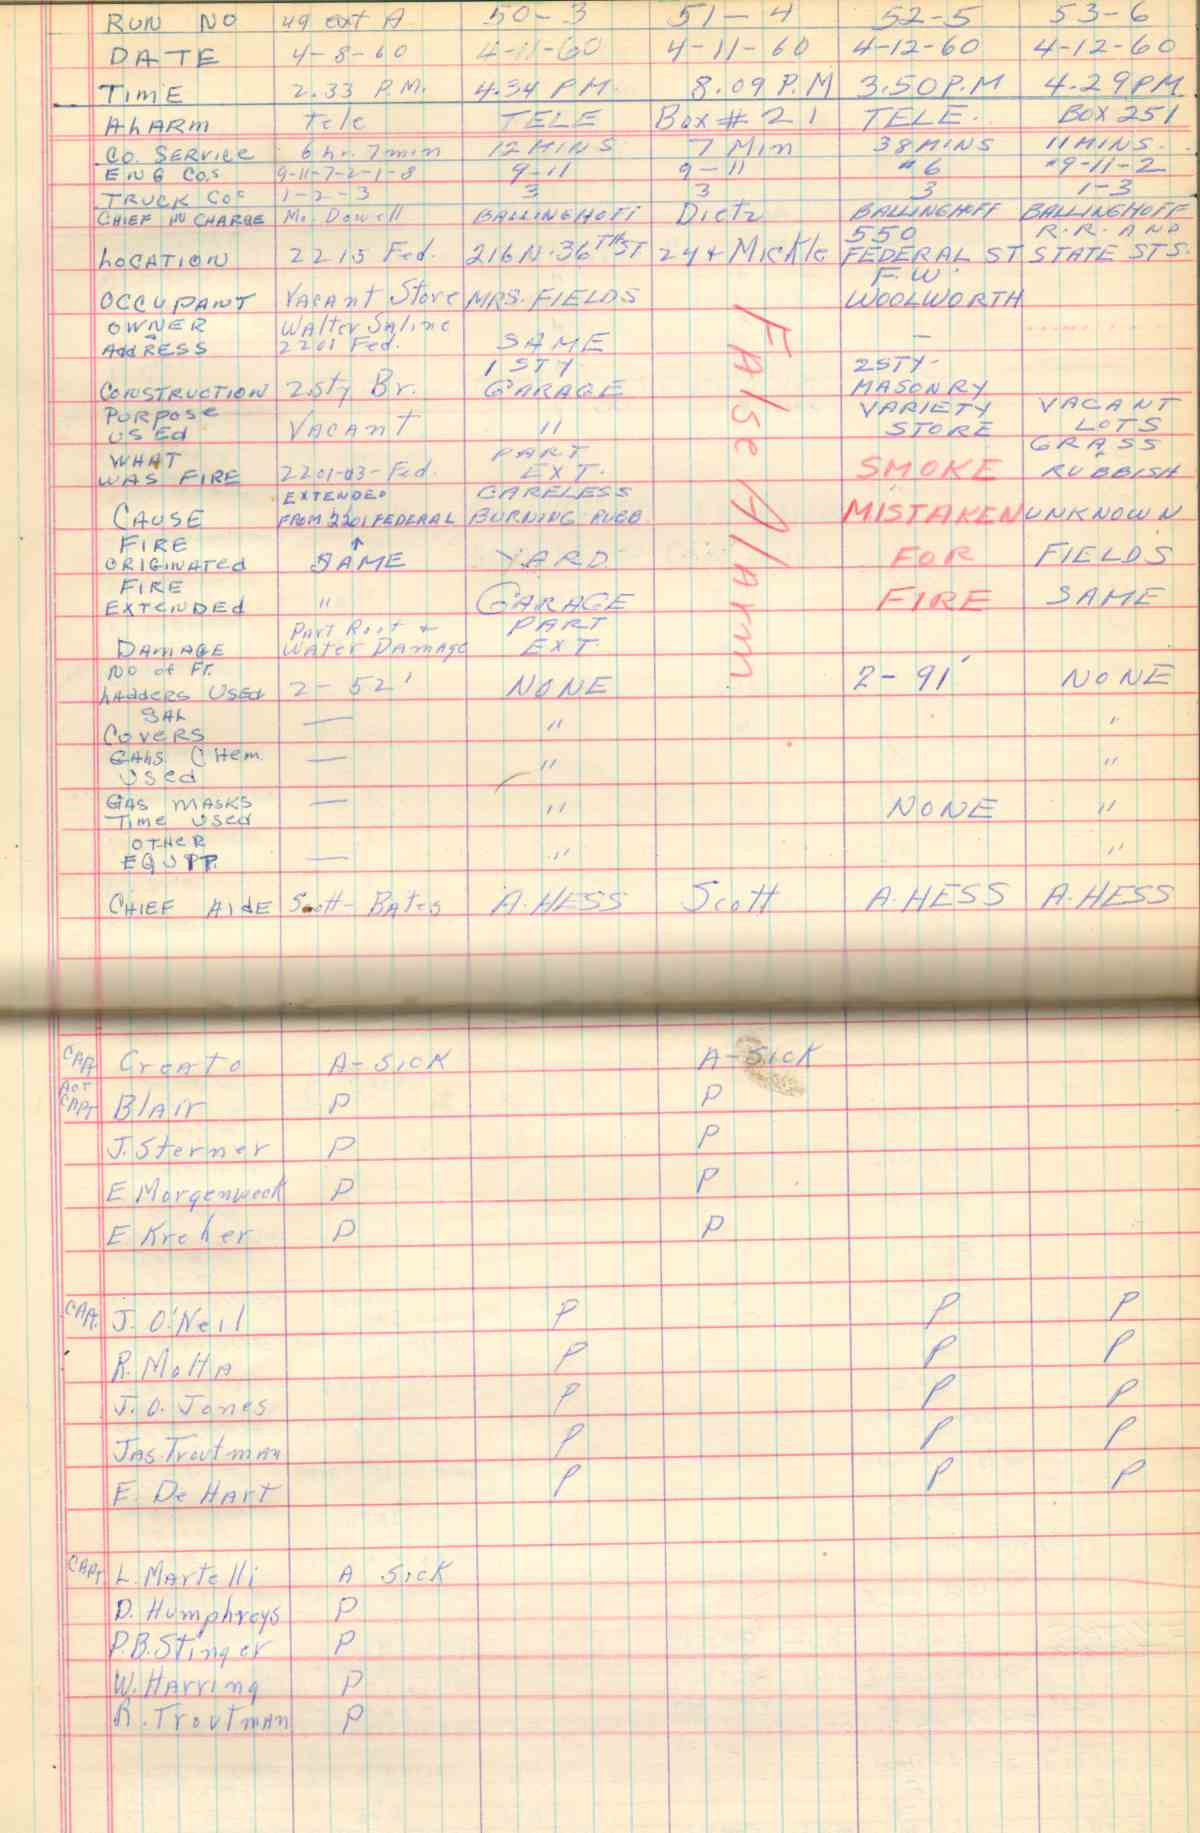 RUN NO 49 ext A 50-3 51-4 52-5 53-6
DATE 4-8-60 4-11-60 4-11-60 4-12-60 4-12-60
TIME 2.33 P.M. 4.34 PM. 8.09 P.M 3.50 P.M 4.29 PM
AlARM Tele TELE Box # 21 TELE. BOX 251
Co. SERVICE 6 hr. 7 min 12 MINS 7 Min 38 MINS 11 MINS.
ENG COS 9-11-7-2-1-8 9-11 9-11 #6 #9-11-2
TRUCK COS 1-2-3 3 3 3 1-3
CHIEF IN CHARGE Mc Dowell BALLINGHOFF Dietz BALLINGHOFF BALLINGHOFF
LOCATION 2215 Fed. 216 N. 36TH ST 24 + Mickle 550 FEDERAL ST R.R. AND STATE STS.
OCCUPANT Vacant Store MRS. FIELDS F.W. WOOLWORTH
OWNER Walter Saline
AddRESS 2201 Fed. SAME —
CONSTRUCTION 2 Sty Br. 1 STY GARAGE 2 STY- MASONRY
PURPOSE USEd VACANT " VARIETY STORE VACANT LOTS
WHAT WAS FIRE 2201-03-Fed. PART EXT. SMOKE GRASS & RUBBISH
CAUSE EXTENDED FROM 2201 FEDERAL CARELESS BURNING RUBB MISTAKEN UNKNOWN
FIRE ORIGINATEd ↑ SAME YARD FOR FIELDS
FIRE EXTENDEd " GARAGE FIRE SAME
False Alarm
DAMAGE Part Roof + Water Damage PART EXT.
No of Ft. LAdders Used 2-52' NONE 2-91' NONE
SAL COVERS — " "
GAls CHem. Used — " "
GAS MASKS Time Used — " NONE "
OTHER EQUIPP. — " "
CHIEF AIdE Scott-Bates A. HESS Scott A. HESS A. HESS
CAPT Creato A-SICK A-SICK
ACT CAPT Blair P P
J. Sterner P P
E Morgenweck P P
E Kreher P P
CAPT. J. O'Neil P P P
R. Motta P P P
J. O. Jones P P P
Jas Troutman P P P
E. De Hart P P P
CAPT L. Martelli A SICK
D. Humphreys P
P.B. Stinger P
W. Harring P
R. Troutman P